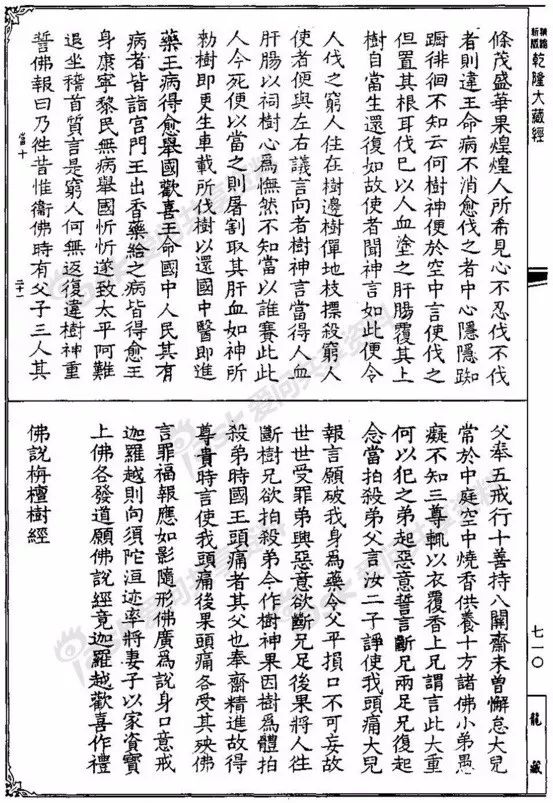 乾隆大藏經
條茂盛華果煌煌人所希見心不忍伐不伐
者則違王命病不消愈伐之者中心隱隱踟
蹰徘徊不知云何樹神便於空中言使伐之
但置其根耳伐巳以人血塗之肝腸覆其上
樹自當生還復如故使者聞神言如此便令
人伐之窮人住在樹邊樹僤地枝摽殺窮人
使者便與左右議言向者樹神言當得人血
肝腸以祠樹心爲憮然不知當以誰賽此此
人今死便以當之則屠割取其肝血如神所
勑樹即更生車載所伐樹以還國中醫即進
藥王病得愈舉國歡喜王命國中人民其有
病者皆詣宮門王出香藥給之病皆得愈王
身康寧黎民無病舉國忻忻遂致太平阿難
退坐稽首質言是窮人何無返復違樹神重
誓佛報曰乃徃昔惟衞佛時有父子三人其
當十
七一〇
龍藏
父奉五戒行十善持八關齋未曾懈怠大兒
常於中庭空中燒香供養十方諸佛小弟愚
癡不知三尊輒以衣覆香上兄謂言此大重
何以犯之弟起惡意誓言斷兄兩足兄復起
念當拍殺弟父言汝二子諍使我頭痛大兒
報言願破我身爲藥令父平損口不可妄故
世世受罪弟興惡意欲斷兄足後果將人往
斷樹兄欲拍殺弟今作樹神果因樹爲體拍
殺弟時國王頭痛者其父也奉齋精進故得
尊貴時言使我頭痛後果頭痛各受其殃佛
言罪福報應如影隨形佛廣爲說身口意戒
迦羅越則向須陀洹迹率將妻子以家資寳
上佛各發道願佛說經竟迦羅越歡喜作禮
佛說栴檀樹經